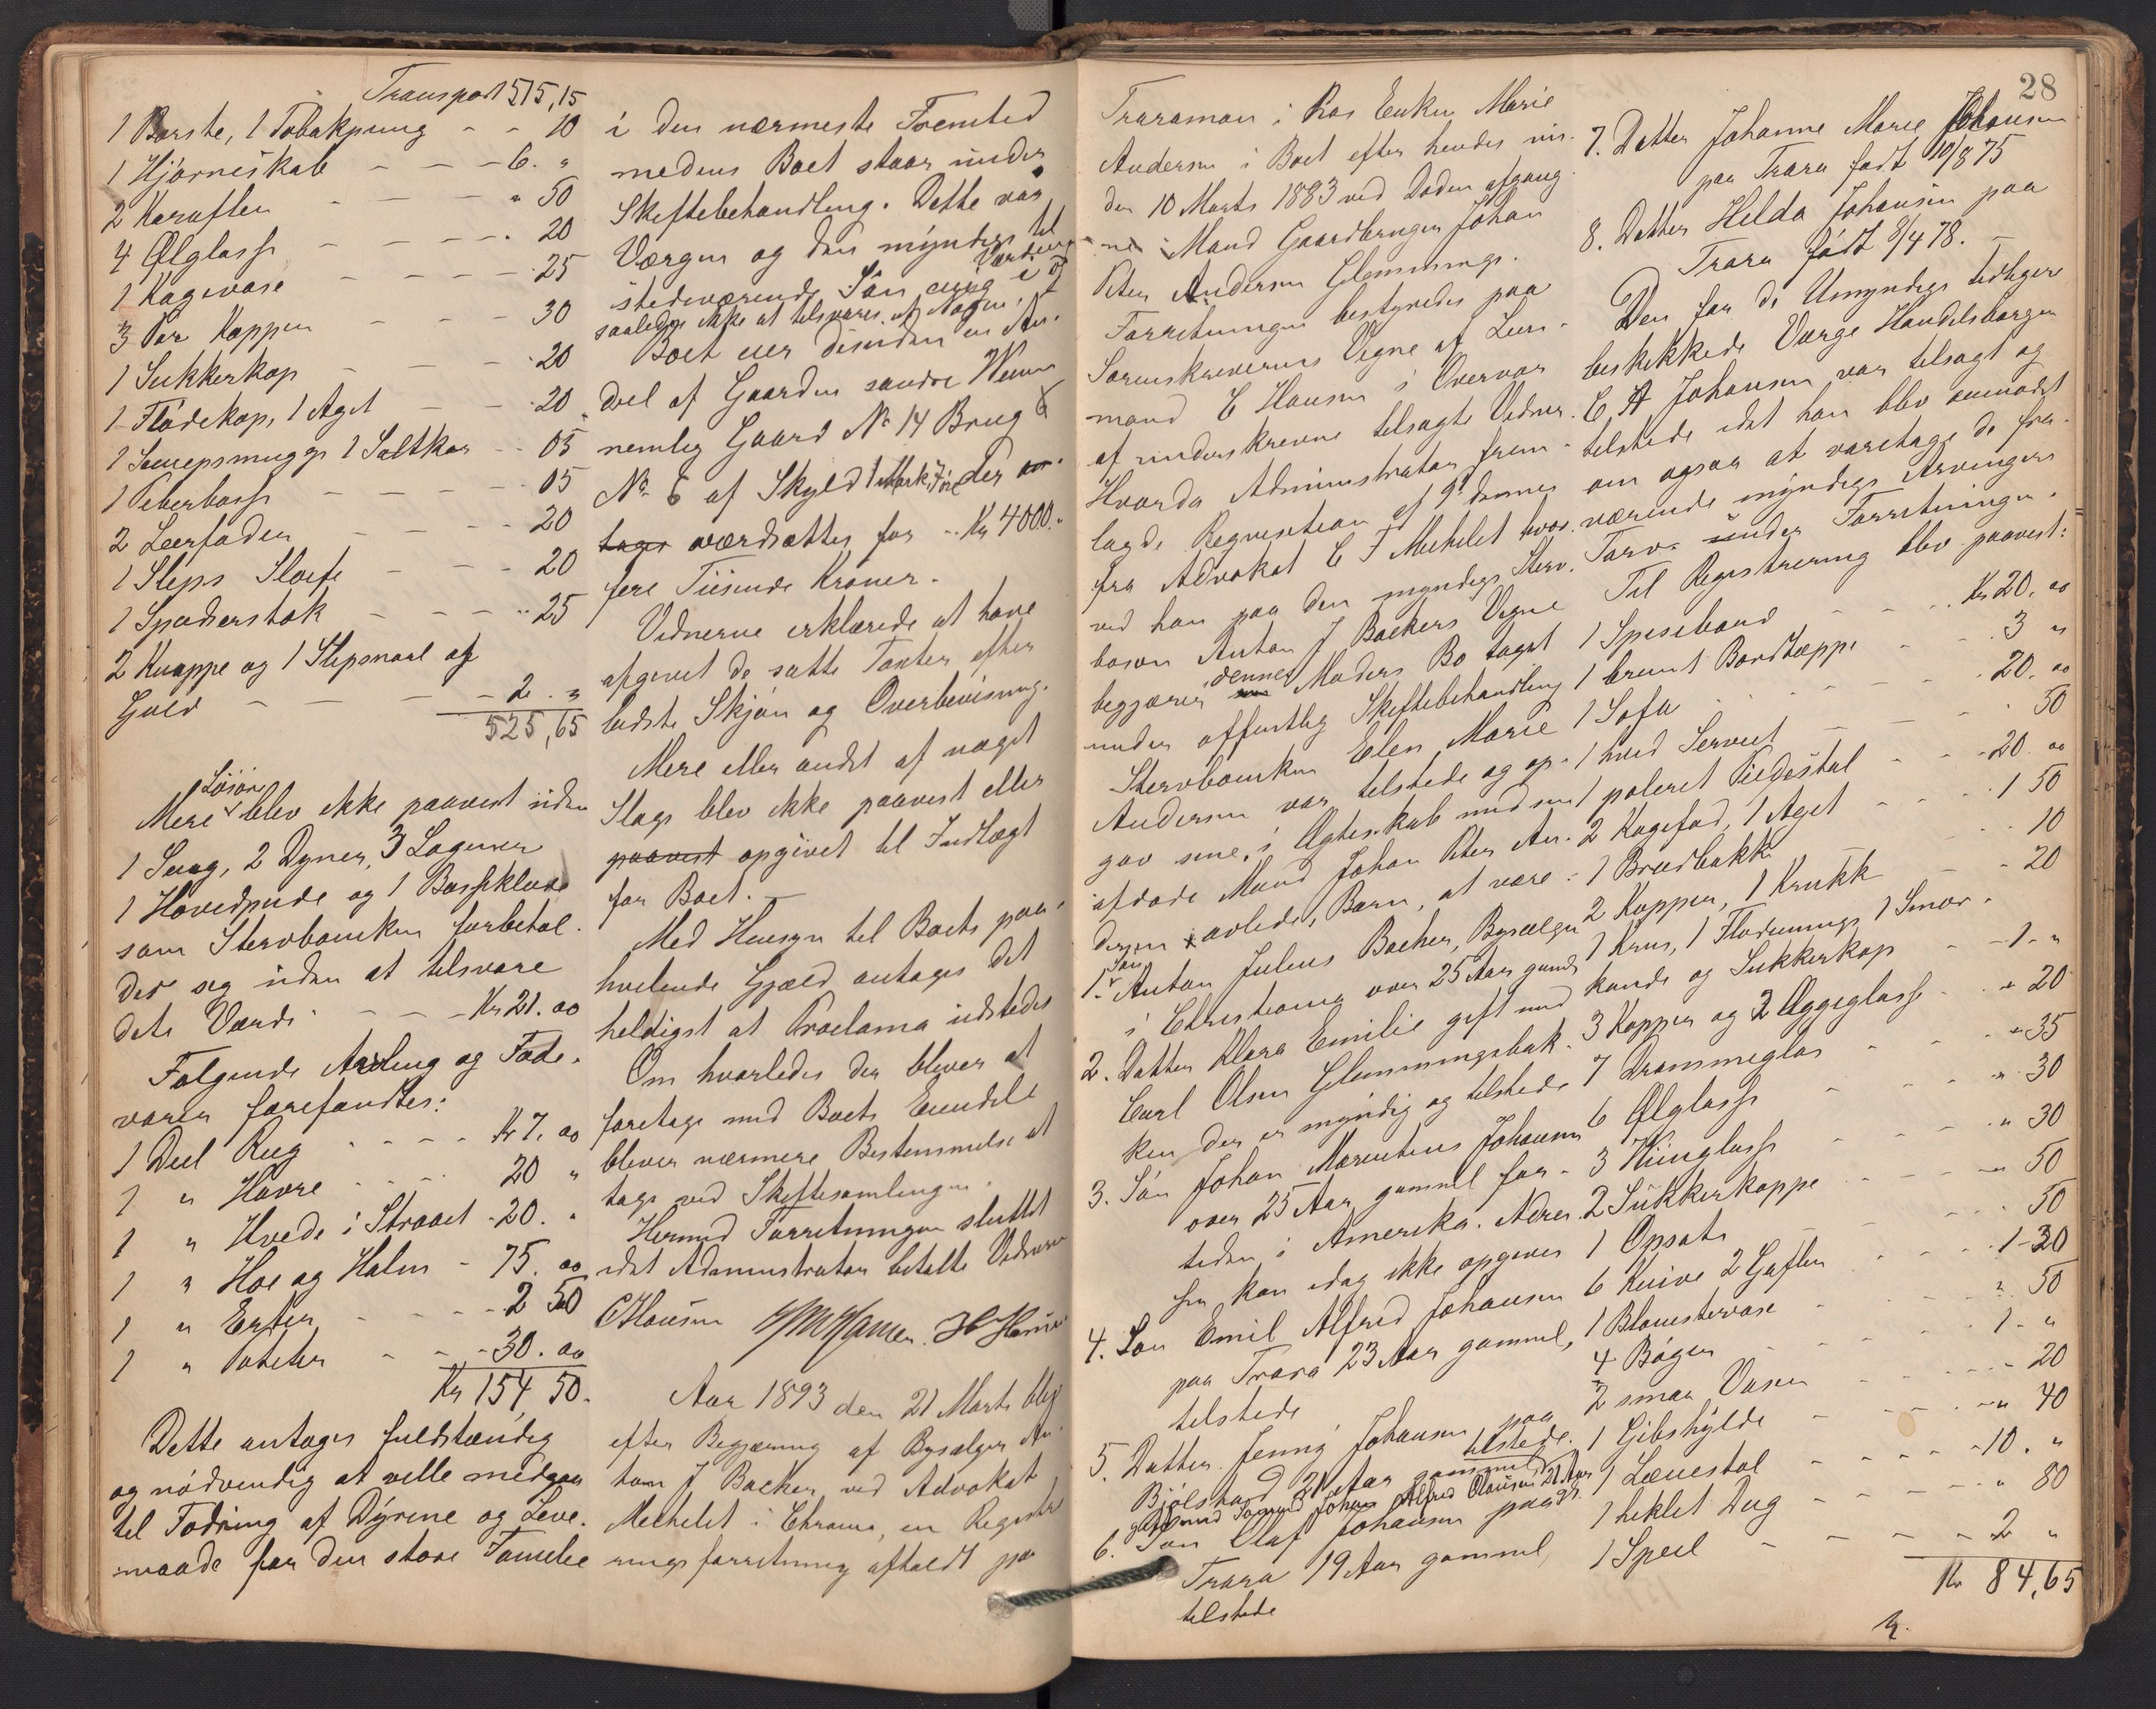 Transport 515,15
1 Børste, 1 Tobakpung - - 10
1 Hjørneskab - - - 6. "
2 Karafler - - - " 50
4 Ølglasse - - - - . 20
1 Kagevase - - - - - 25
3 Par Kopper - - - 30
1 Sukkerkop - - - . 20
1 Flødekop, 1 Aget - - . 20
1 Senepsmugge 1 Saltkar - - 05
1 Peberbøsse - - - - . 05
2 Leerfader - - - - 20
1 Slips Sløife - - - 20
1 Spadserstok - - - - " 25
2 Knappe og 1 Slipsnaal af
Guld - - - - 2. "
525,65
Løsøre
Mere blev ikke paavist uden
1 Seng, 2 Dyner, 3 Lagener
1 Hovedpude og 1 Bordklæde
som Stervboenken forbehol-
der sig uden at tilsvare
dets Værdi - - - Kr 21. 00
Følgende Avling og Føde-
varer forefandtes:
1 Deel Rug - - - - Kr 7. 00
1 " Havre - - - - 20 "
1 " Hvede i Straaet - 20. "
1 " Hø og Halm - 75. 00
1 " Erter - - - - 2 50
1 " Poteter - - - 30. 00
Kr 154 50.
Dette antages fuldstændig
og nødvendig at ville medgaa
til Fodring af Dyrene og Leve-
maade for den store Familie
i den nærmeste Fremtid
medens Boet staar under
Skiftebehandling. Dette var
Vergen og den myndige til
stedeværende Søn enig i og Værdien
saaledes ikke at tilsvares af Nogen.
Boet eier desuden en An-
del af Gaarden søndre
nemlig Gaard No 14 Brug
No 6 af Skyld 1 Mark 7 Øre der an-
tages værdsattes for - Kr 4000."
fire Tusinde Kroner.
Vidnerne erklærede at have
afgivet de satte Taxter efter
bedste Skjøn og Overbevisning.
Mere eller andet af noget
Slags blev ikke paavist eller
paavist opgivet til Indtægt
for Boet. -
Med Hensyn til Boets paa-
hvilende Gjæld antages det
heldigst at Proclama udstedes
Om hvorledes der bliver at
foretage med Boets Eiendele
bliver nærmere Bestemmelse at
tage ved Skiftesamlingen.
Hermed Forretningen sluttet
idet Administrator betalte Vidnerne
C Hansen
Aar 1893 den 21 Marts blev
efter Begjæring af Bysælger An-
ton J Backer ved Advokat
Mechelet i Chrania, en Registre
ringsforretning afholdt paa
28
Traraman i Ras Enken Marie
Andersen i Boet efter hendes
den 10 Marts 1883 ved Døden afgang-
ne Mand Gaardbruger Johan
Peter Andersen Glemminge.
Forretningen bestyredes paa
Sorenskriverens Vegne af Lens-
mand C Hansen i Overvær
af underskrevne tilsagte Vidner.
Hvorda Administrator frem-
lagde Requisition af 9d dennes
fra Advokat C J Mechelet hvor-
ved han paa den myndige Sterv-
boson Anton J Backers Vegne
begjærer dennes Moders Bo taget
under offentlig Skiftebehandling
Stervboenken Elen Marie
Andersen var tilstede og op-
gav sine, i Ægteskab med sin
afdøde Mand Johan Peter An-
dersen avlede, Børn, at være:
1. Søn Anton Julius Backer, Bysælger
i Christiania over 25 Aar gaml
2. Datter Klara Emilie gift med
Carl Olsen Glemmingebak-
ken der er myndig og tilstede
3. Søn Johan Marentius Johansen
over 25 Aar gammel for
tiden i Amerika. Adres-
sen kan idag ikke opgives
4. Søn Emil Alfred Johansen
paa Trara 23 Aar gammel,
tilstede
5. Datter Jenny Johansen paa
Bjølstad 21 Aar gammel tilstede.
gift med Sømand Johan Alfred Clausen 21 Aar
6. Søn Olaf Johansen paa
Trara 19 Aar gammel,
tilstede
7. Datter Johanne Marie Johansen
paa Trara født 10/8 75
8. Datter Helda Johansen paa
Trara født 8/4 78. -
Den for de Umyndige tidligere
beskikkede Værge Handelsborger
C, A Johansen var tilsagt og
tilstede idet han blev anmodet
om ogsaa at varetage de fra-
værende myndige Arvingers
Tarv under Forretningen.
Til Registrering blev paavist:
1 Spisebord - - - Kr 20. 00
1 brunt Bordtæppe - - . 3 "
1 Sofa - - - - - 20. 00
1 hvid Serviet - - - - 50
1 poleret Piedestal - - - 20. 00
2 Kagefad, 1 Aget - - - 1 50
1 Brødbakke - - - - 10
2 Kopper, 1 Krukke - - 20
1 Krus, 1 Flødemugge 1 Smør-
kande og Sukkerkop - - 1. "
3 Kopper og 2 Æggeglasse - . " 20
7 Dramme­glas - - - " 35
6 Ølglasse - - - - " 30
3 Viinglasse - - - - " 30
2 Sukkerkoppe - - - - " 50
1 Opsats - - - - - 50
6 Knive 2 Gafler - - - 1-30
1 Blomstervase - - - " 50
4 Bøger - - - - 1. "
2 smaa Vaser - - - - 20
1 Gibshylde - - - - " 40
1 Lænestol - - - - 10. "
1 heklet Dug - - - - " 80
1 Speil - - - - - 2 "
Kr 84,65